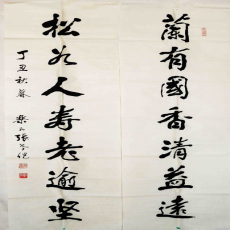 蘭有國香清益遠
松如人壽老逾堅
丁丑秋暮
樂山張